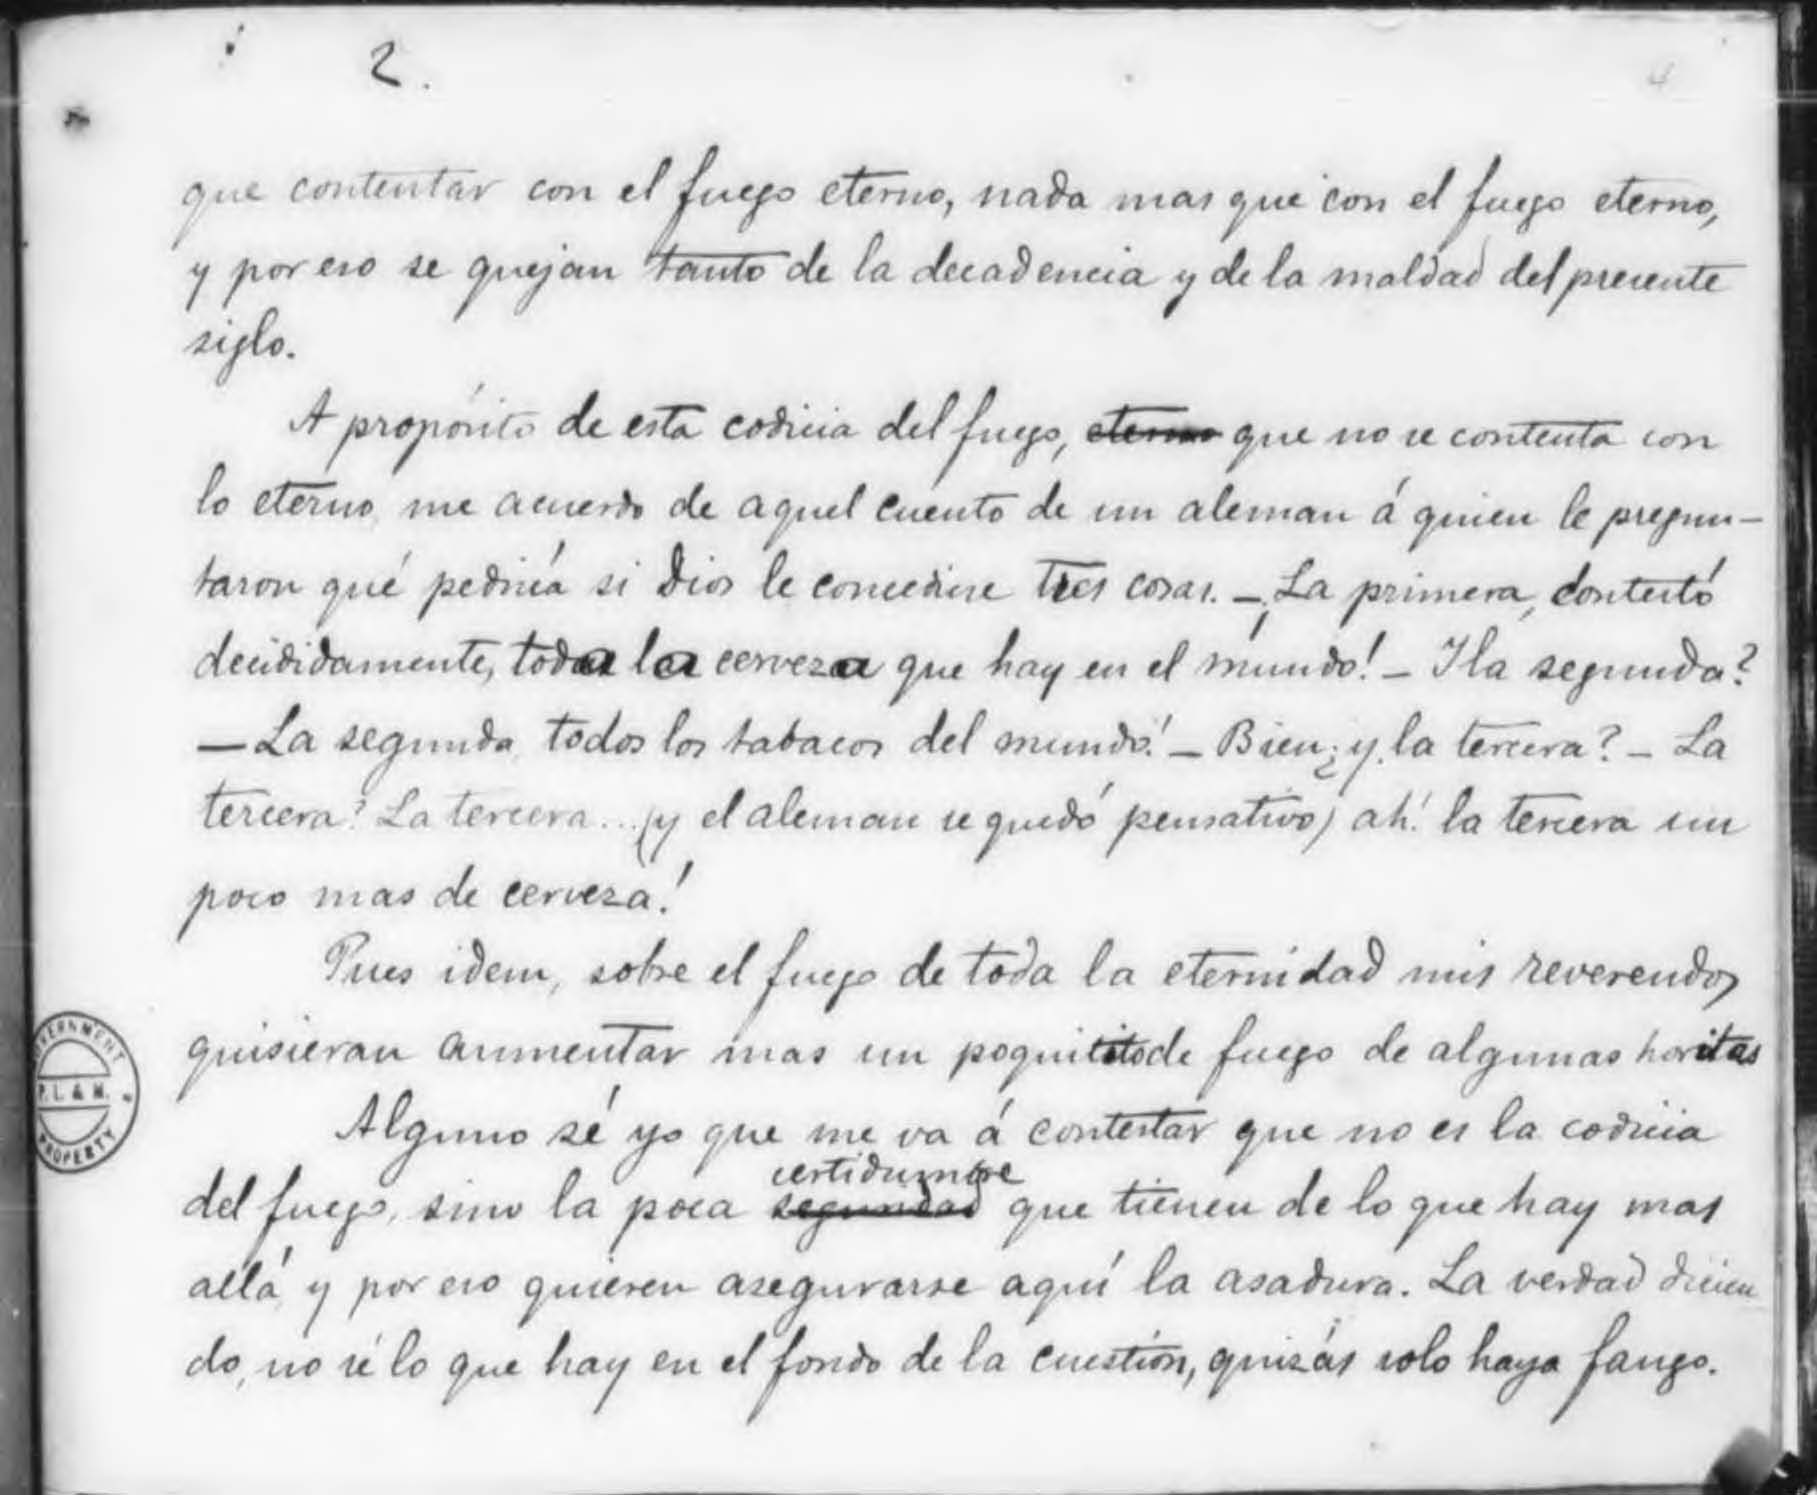 2.
4
que contentar con el fuego eterno, nada mas que con el fuego eterno,
y por eso se quejan tanto de la decadencia y de la maldad del presente
siglo.
A propósito de esta codicia del fuego, eterno que no se contenta con
lo eterno, me acuerdo de aquel cuento de un aleman á quien le pregun-
taron qué pediría si Dios le concediese tres cosas. - ¡La primera, contestó
decididamente, toda la cerveza que hay en el mundo! - Y la segunda?
- La segunda, todos los tabacos del mundo! - Bien; ¿y la tercera? - La
tercera? La tercera... (y el aleman se quedó pensativo) ah! la tercera un
poco mas de cerveza!
Pues idem, sobre el fuego de toda la eternidad mis reverendos
quisieran aumentar mas un poquitito de fuego de algunas horitas
Alguno sé yo que me va á contestar que no es la codicia
certidumbre
del fuego, sino la poca seguridad que tienen de lo que hay mas
allá, y por eso quieren asegurarse aquí la asadura. La verdad dicien
do, no sé lo que hay en el fondo de la cuestión, quizás solo haya fango.
GOVERNMENT
P. L. & M.
PROPERTY